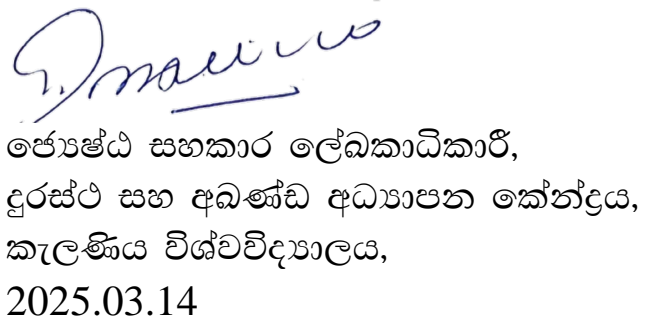 ජ්‍යෙෂ්ඨ සහකාර ලේඛකාධිකාරී,
දුරස්ථ සහ අඛණ්ඩ අධ්‍යාපන කේන්ද්‍රය,
කැලණිය විශ්වවිද්‍යාලය,
2025.03.14